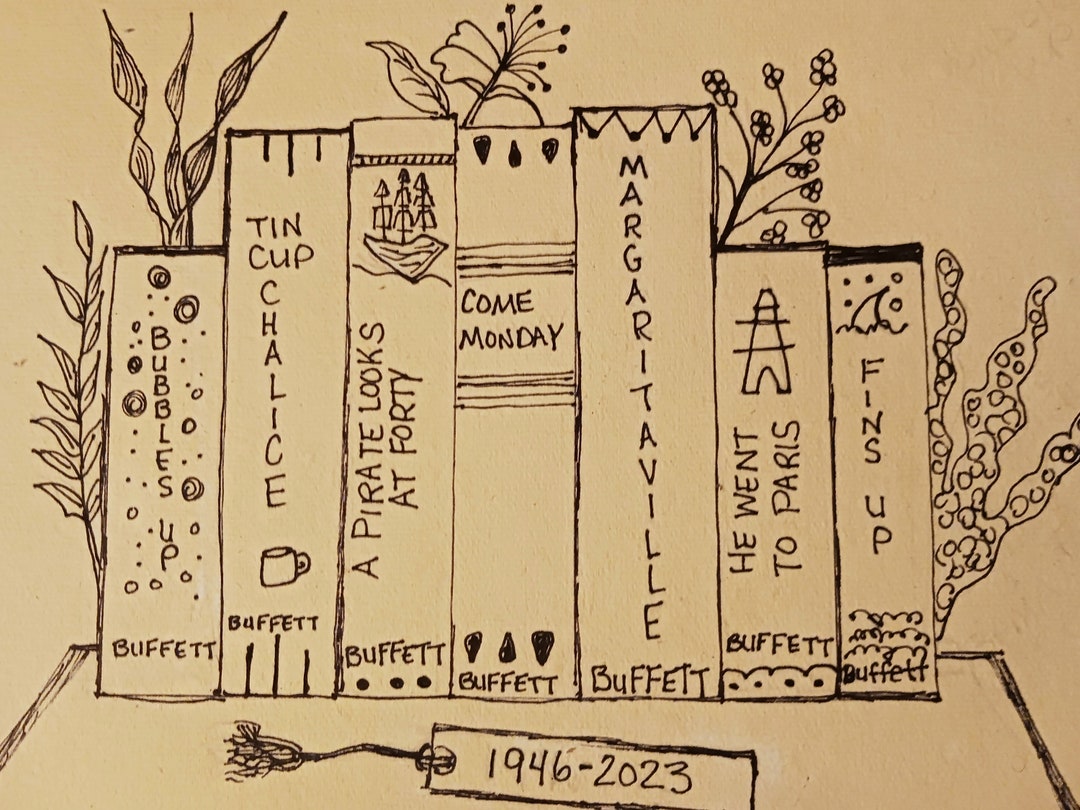 BUBBLES UP
BUFFETT
TIN
CUP
CHALICE
BUFFETT
A PIRATE LOOKS
AT FORTY
BUFFETT
COME
MONDAY
BUFFETT
MARGARITAVILLE
BUFFETT
HE WENT
TO PARIS
BUFFETT
FINS UP
Buffett
1946-2023